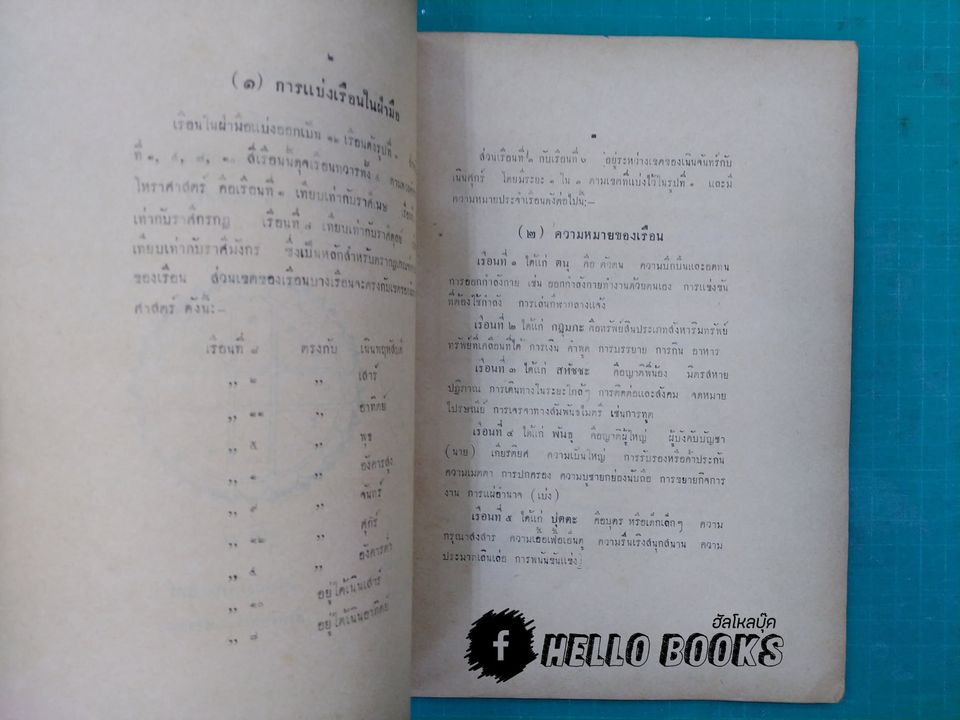 ๒
(๑) การแบ่งเรือนในฝ่ามือ
เรือนในฝ่ามือแบ่งออกเป็น ๑๒ เรือนดังรูปที่ ๑
ที่ ๑, ๔, ๗, ๑๐ สี่เรือนนี้ดุจเรือนทวารทั้ง ๔
โหราศาสตร์ คือเรือนที่ ๑ เทียบเท่ากับราศีเมษ
เท่ากับราศีกรกฎ เรือนที่ ๗ เทียบเท่ากับราศีตุลย์
เทียบเท่ากับราศีมังกร ซึ่งเป็นหลักสำหรับ
ของเรือน ส่วนเขตของเรือนบางเรือนจะตรงกับเขต
ศาสตร์ ดังนี้:–
เรือนที่ ๘ ตรงกับ เนินพฤหัสบดี
,, ๒ ,, เสาร์
,, ๑๑ ,, อาทิตย์
,, ๕ ,, พุธ
,, ๑ ,, อังคารสูง
,, ๙ ,, จันทร์
,, ๑๒ ,, ศุกร์
,, ,, อังคารต่ำ
,, ๑๐ อยู่ใต้เนินเสาร์
,, อยู่ใต้เนินอาทิตย์
ส่วนเรือนที่ กับเรือนที่ ๖ อยู่ระหว่างเขตของเนินจันทร์กับ
เนินศุกร์ โดยมีระยะ ๑ ใน ๓ ตามเขตที่แบ่งไว้ในรูปที่ ๑ และมี
ความหมายประจำเรือนดังต่อไปนี้:–
(๒) ความหมายของเรือน
เรือนที่ ๑ ได้แก่ ตนุ คือ ตัวตน ความบึกบึนและอดทน
การออกกำลังกาย เช่น ออกกำลังกายทำงานด้วยตนเอง การแข่งขัน
ที่ต้องใช้กำลัง การเล่นกีฬากลางแจ้ง
เรือนที่ ๒ ได้แก่ กฎุมภะ คือทรัพย์สินประเภทสังหาริมทรัพย์
ทรัพย์ที่เคลื่อนที่ได้ การเงิน คำพูด การบรรยาย การกิน อาหาร
เรือนที่ ๓ ได้แก่ สหัชชะ คือญาติพี่น้อง มิตรสหาย
ปฏิภาณ การเดินทางในระยะใกล้ๆ การติดต่อและสังคม จดหมาย
ไปรษณีย์ การเจรจาทางสัมพันธไมตรี เช่นการทูต
เรือนที่ ๔ ได้แก่ พันธุ คือญาติผู้ใหญ่ ผู้บังคับบัญชา
(นาย) เกียรติยศ ความเป็นใหญ่ การรับรองหรือค้ำประกัน
ความเมตตา การปกครอง ความบูชายกย่องนับถือ การขยายกิจการ
งาน การแผ่อำนาจ (เบ่ง)
เรือนที่ ๕ ได้แก่ ปุตตะ คือบุตร หรือเด็กเล็กๆ ความ
กรุณาสงสาร ความเอื้อเฟื้อเอ็นดู ความรื่นเริงสนุกสนาน ความ
ประมาทเลินเล่อ การพนันขันแข่ง
ฮัลโหลบุ๊ค
f HELLO BOOKS